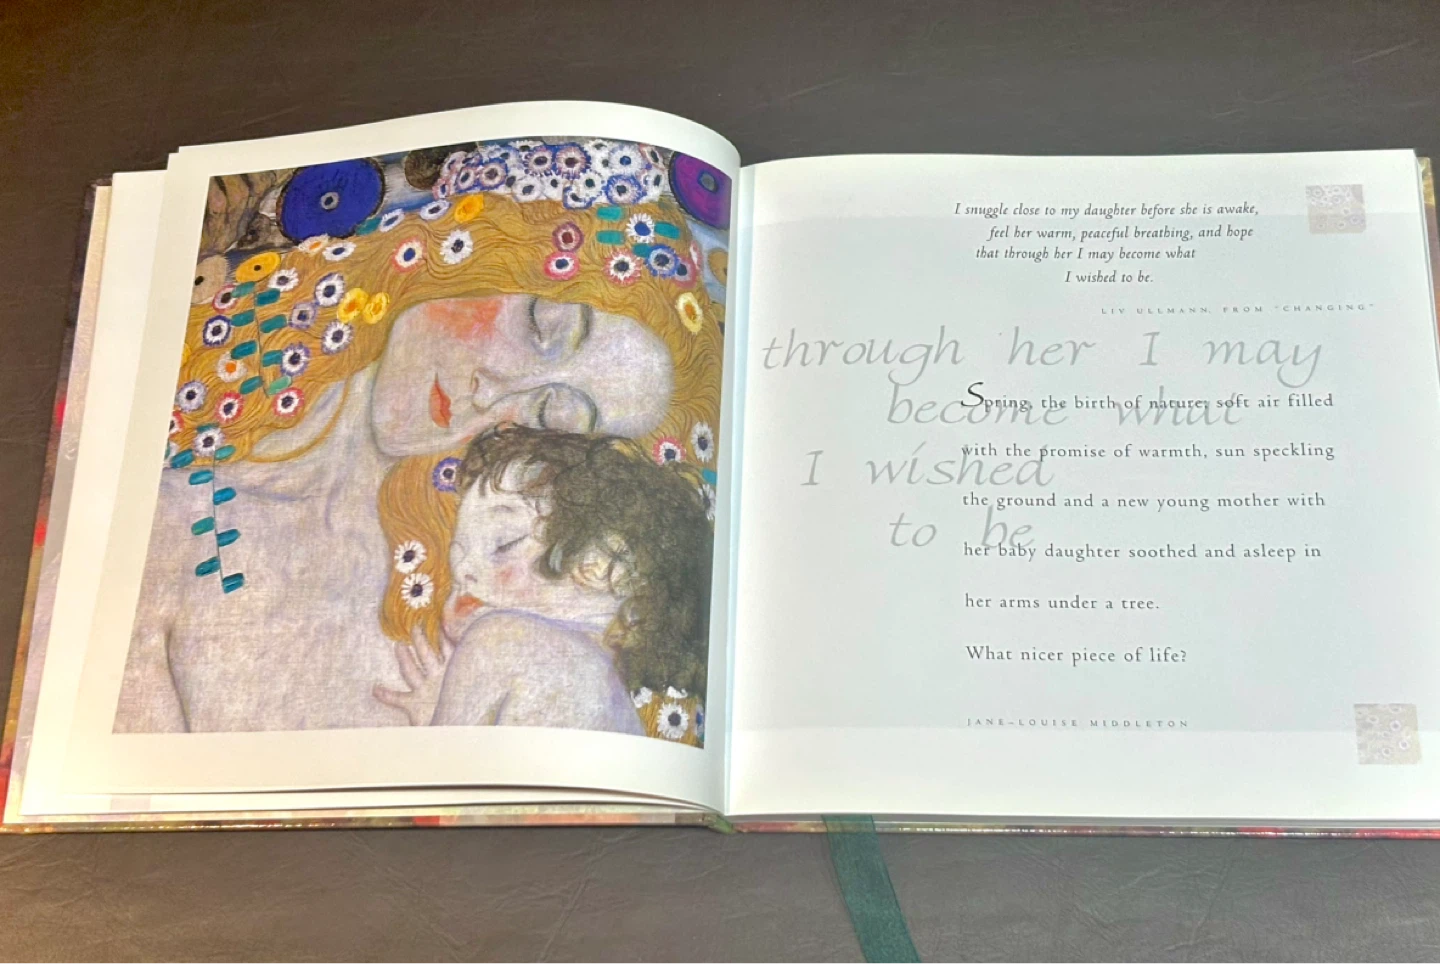 I snuggle close to my daughter before she is awake,
feel her warm, peaceful breathing, and hope
that through her I may become what
I wished to be.
LIV ULLMANN, FROM "CHANGING"
through her I may
become what
I wished
to be
Spring, the birth of nature; soft air filled
with the promise of warmth, sun speckling
the ground and a new young mother with
her baby daughter soothed and asleep in
her arms under a tree.
What nicer piece of life?
JANE-LOUISE MIDDLETON